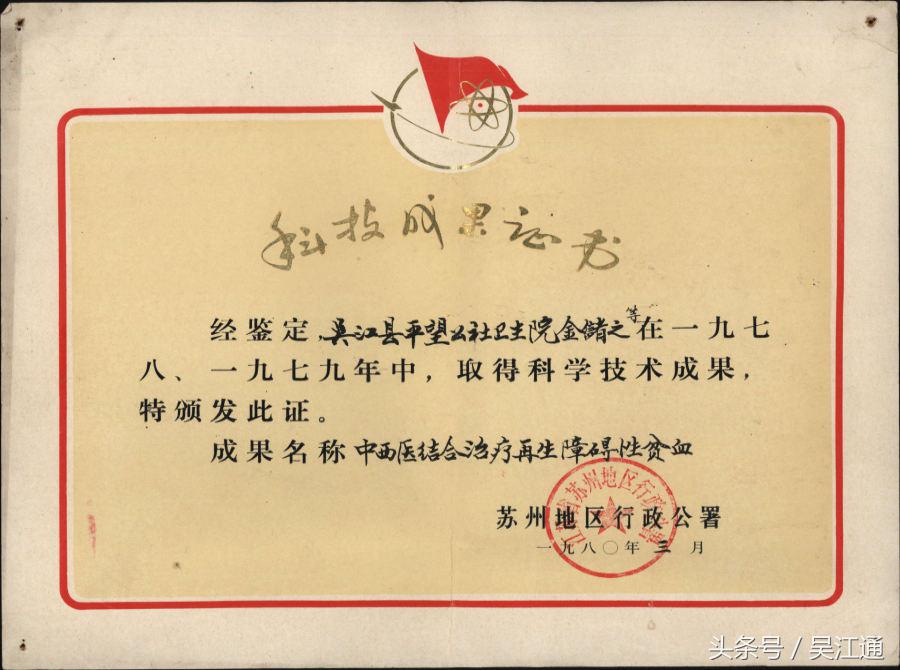 科技成果证书
经鉴定，吴江县平望公社卫生院金储之等在一九七
八、一九七九年中，取得科学技术成果，
特颁发此证。
成果名称 中西医结合治疗再生障碍性贫血
江苏省苏州地区行政公署
苏州地区行政公署
一九八〇年三月
头条号 / 吴江通